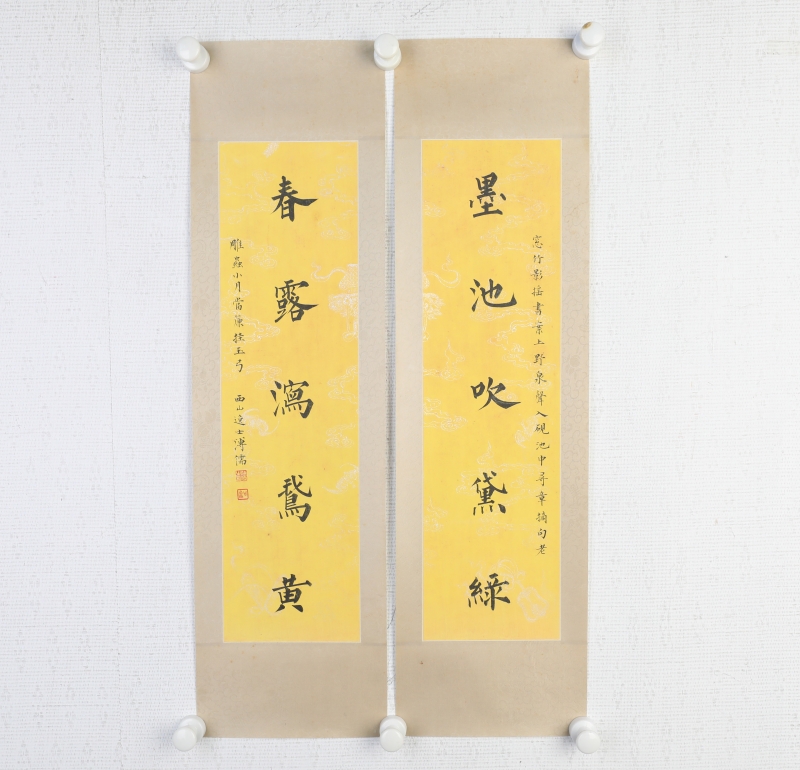 墨池吹黛綠
窓竹影搖書案上野泉聲入硯池中尋章摘句老
春露瀉鵞黃
雕蟲小月當簾挂玉弓
西山逸士溥儒